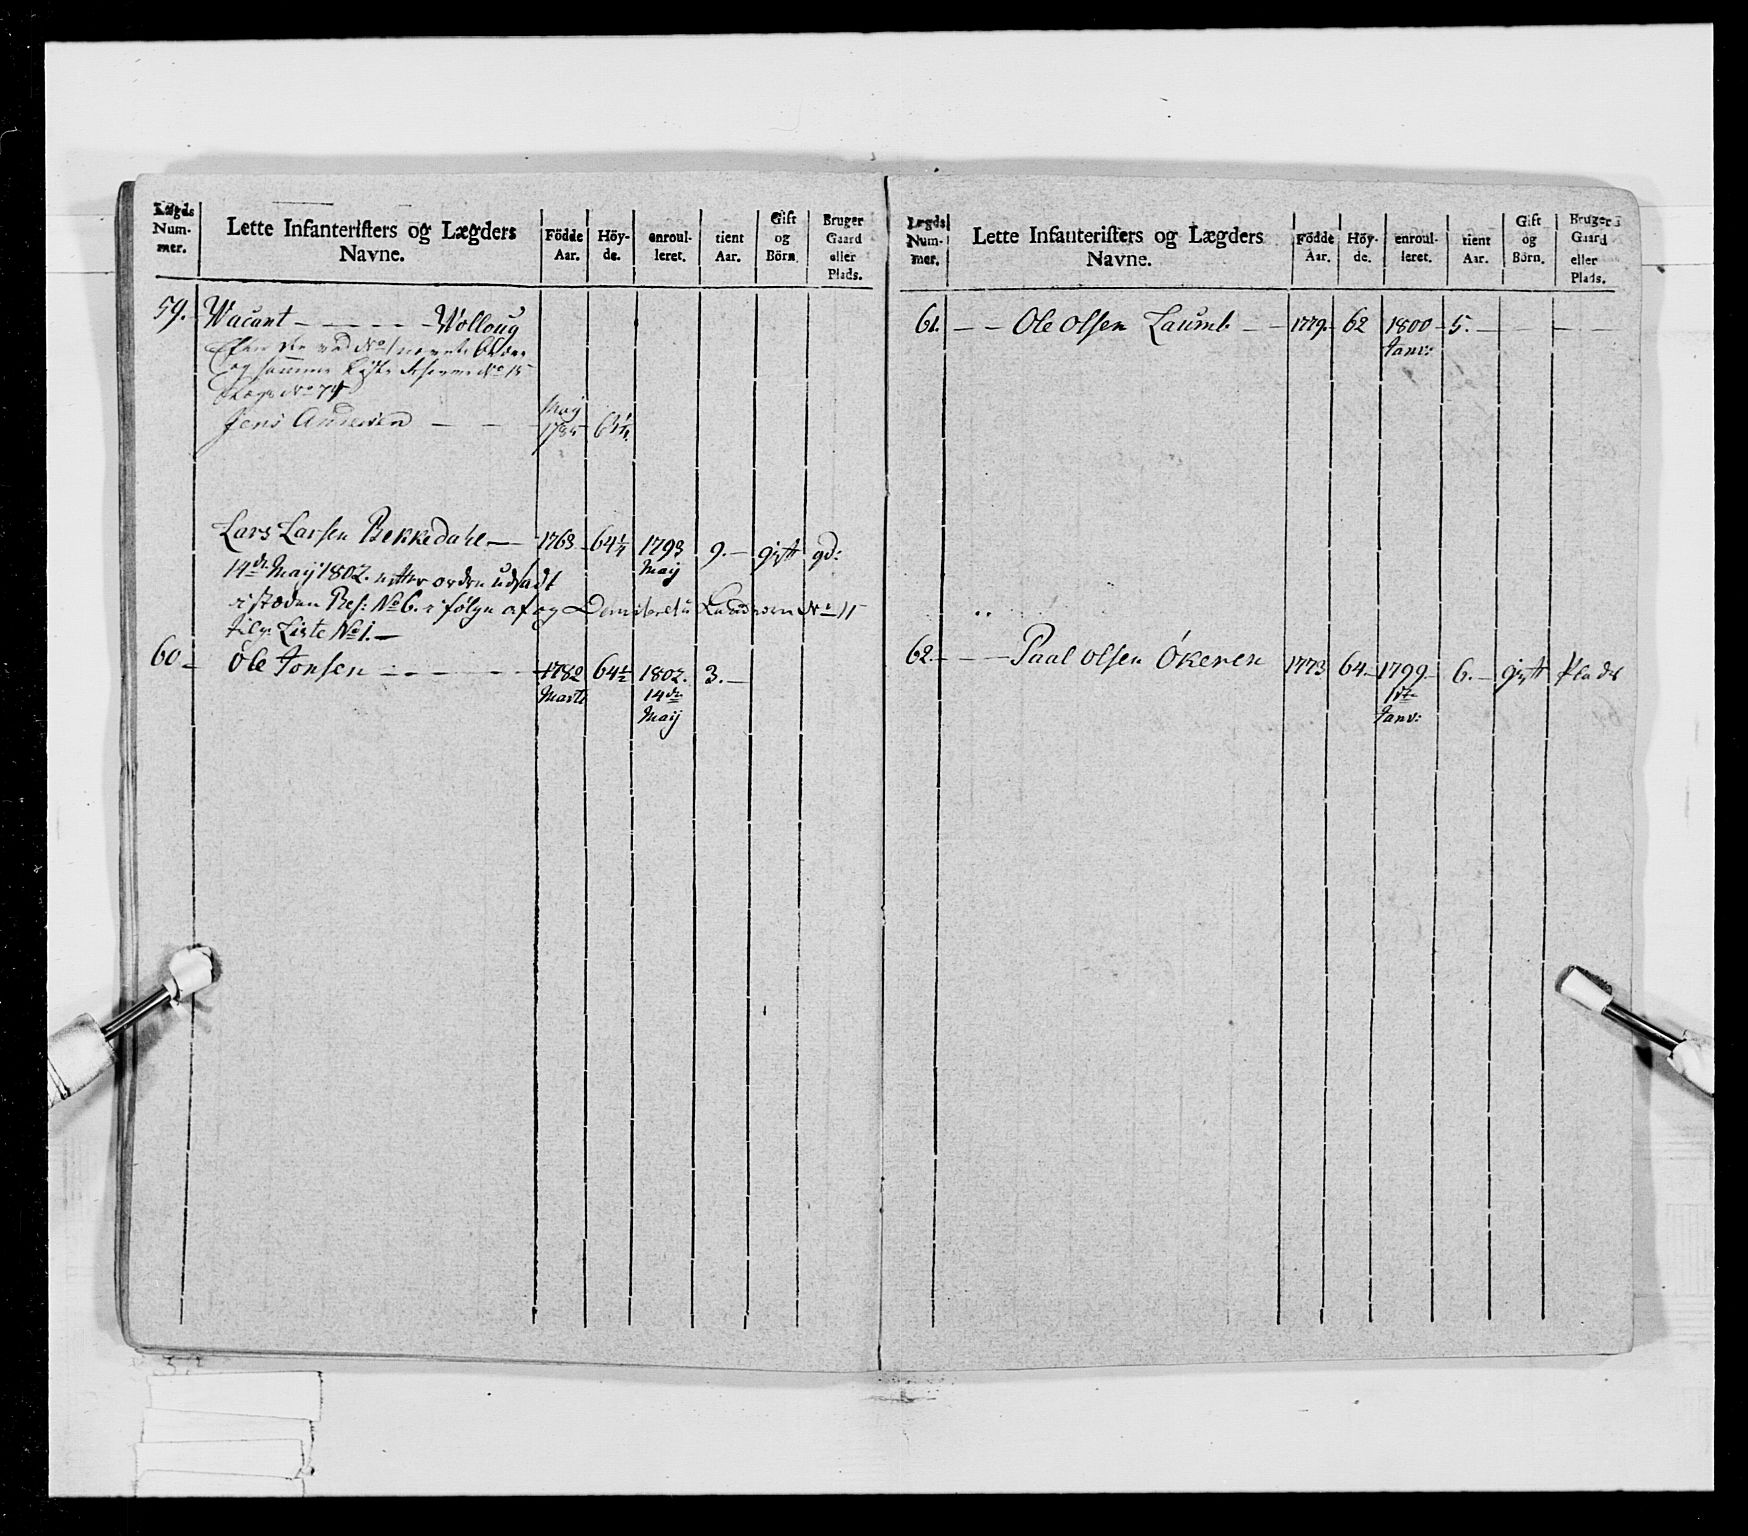 Lægds Num- mer.
Lette Infanteristers og Lægders Navne.
Födde Aar.
Höy- de.
enroul- leret.
tient Aar.
Gift og Börn.
Bruger Gaard eller Plads.
59. Wacant - - - - - Wolloug
No 15
No 74
Jens Andersen - - May 1785 61¼
Lars Larsen Bekkedahl - 1768 64¼ 1793 Maij 9. - gift gd:
14de Maij 1802. efter ordre udsadt
i stæden Res: No 6. i følge af og No 11
Liste No 1. -
60 - Ole Jonsen - - - - - 1782 64½ 1802. 3. -
Marti 14de
Maij
Lægds Num- mer.
Lette Infanteristers og Lægders Navne.
Födde Aar.
Höy- de.
enroul- leret.
tient Aar.
Gift og Börn.
Bruger Gaard eller Plads.
61. - - Ole Olsen Laumb - - 1779. 62 1800 - 5. - - -
Janv:
62. - - Paal Olsen Økeren 1773 64 - 1799 - 6. - gift Plads
1ste
Janv: